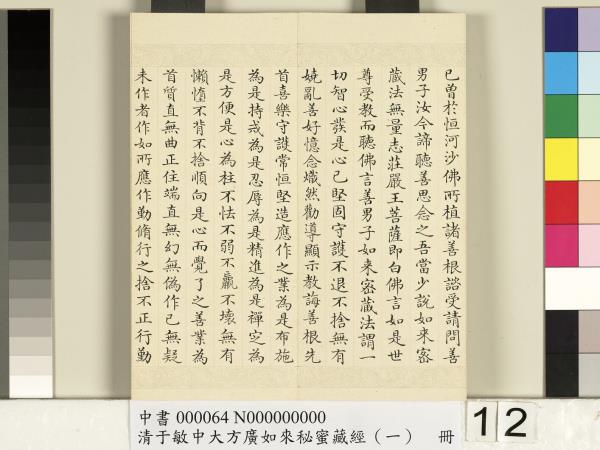 已曾於恒河沙佛所植諸善根諮受請問善
男子汝今諦聽善思念之吾當少說如來密
藏法無量志莊嚴王菩薩即白佛言如是世
尊受教而聽佛言善男子如來密藏法謂一
切智心發是心已堅固守護不退不捨無有
嬈亂善好憶念熾然勸導顯示教誨善根先
首喜樂守護常恒堅造應作之業為是布施
為是持戒為是忍辱為是精進為是禪定為
是方便是心為柱不怯不弱不羸不壞無有
懶惰不背不捨順向是心而覺了之善業為
首質直無曲正住端直無幻無偽作已無疑
未作者作如所應作勤脩行之捨不正行勤
中書 000064 N000000000
清于敏中大方廣如來秘蜜藏經（一） 冊
12